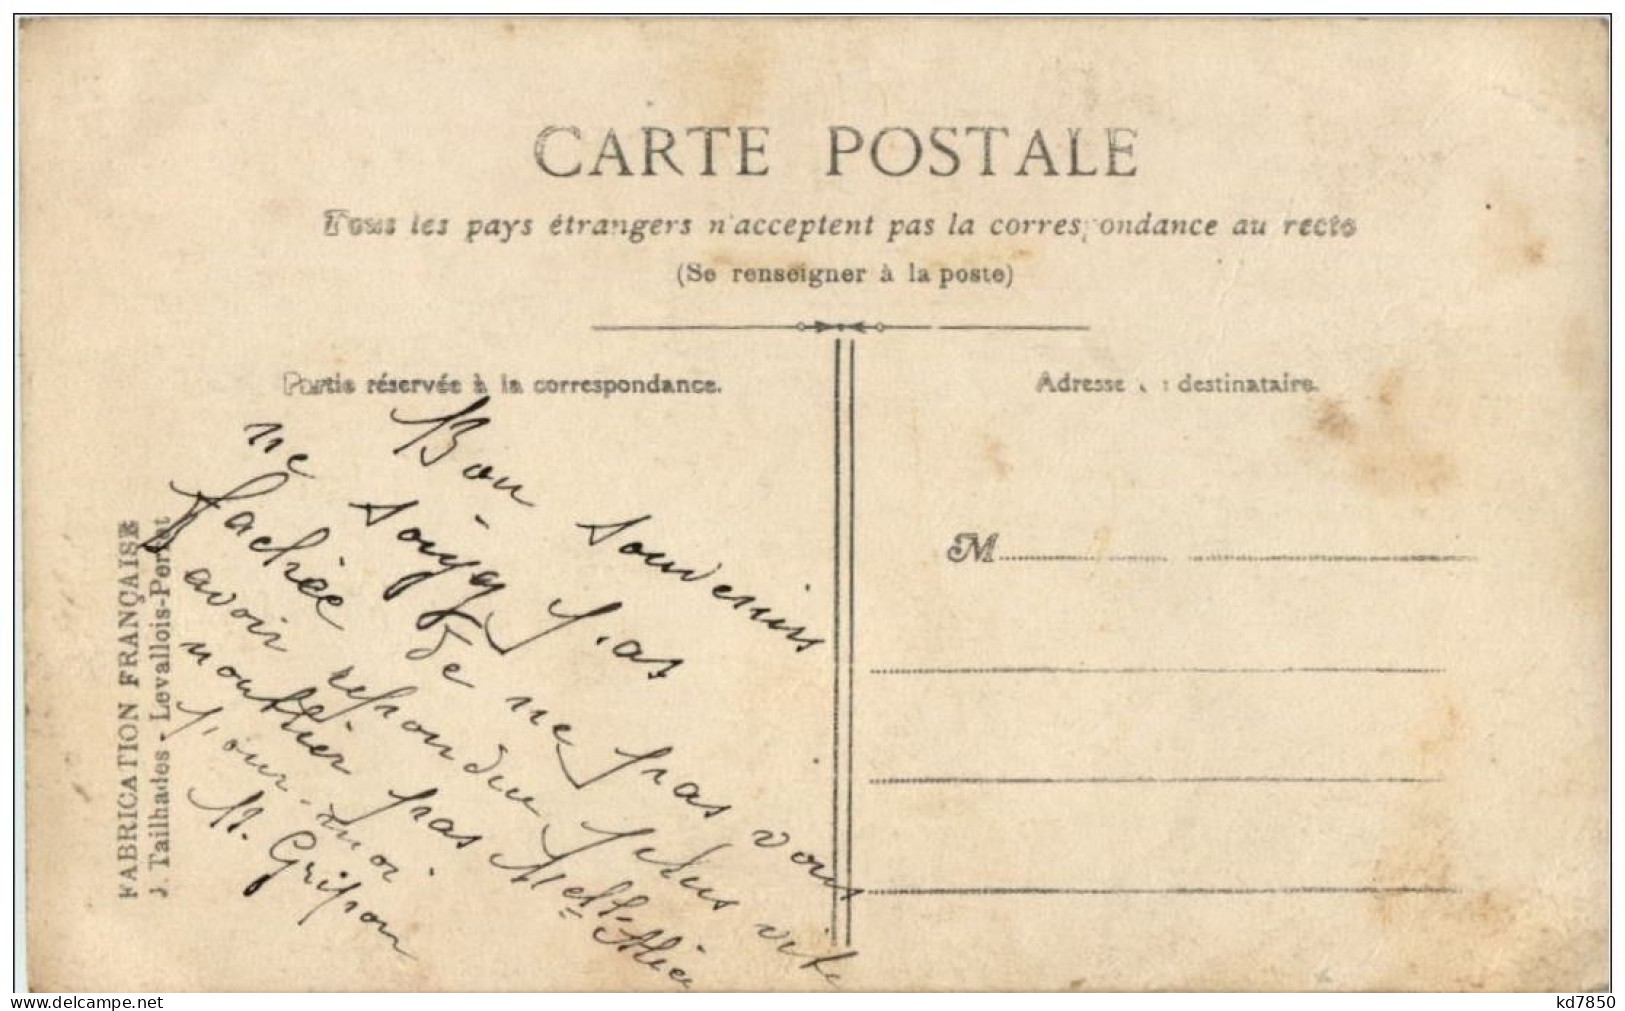 CARTE POSTALE
Tous les pays étrangers n'acceptent pas la correspondance au recto
(Se renseigner à la poste)
Partie réservée à la correspondance.
Adresse du destinataire.
M
Bon souvenirs
ne soyez pas
fachée de ne pas vous
avoir repondu plus vite
noublier pas Melle Alice
pour moi.
M. Gripon
FABRICATION FRANÇAISE
J. Tailhades - Levallois-Perret
kd7850
delcampe.net